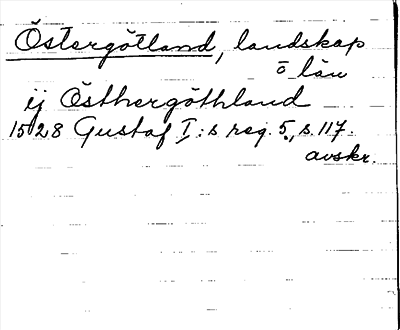 Östergötland, landskap
o län
ij Östhergöthland
1528 Gustaf I:s reg. 5, s. 117.
avskr.